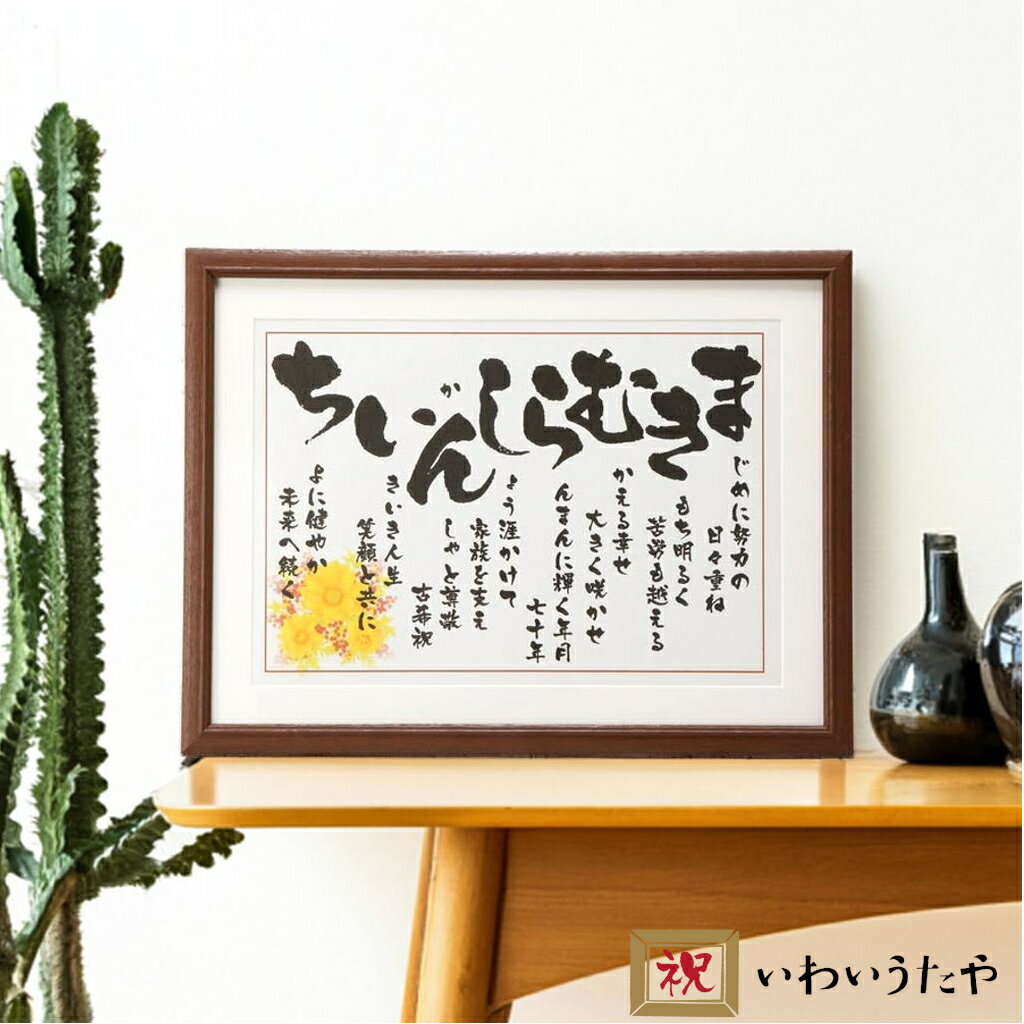 まきむらしかんいち
じめに努力の
日々重ね
もち明るく
苦労も越える
かえる幸せ
大きく咲かせ
んまんに輝く年月
七十年
ょう涯かけて
家族を支え
しゃと尊敬
古希祝
きいき人生
笑顔と共に
よに健やか
未来へ続く
祝 いわいうたや